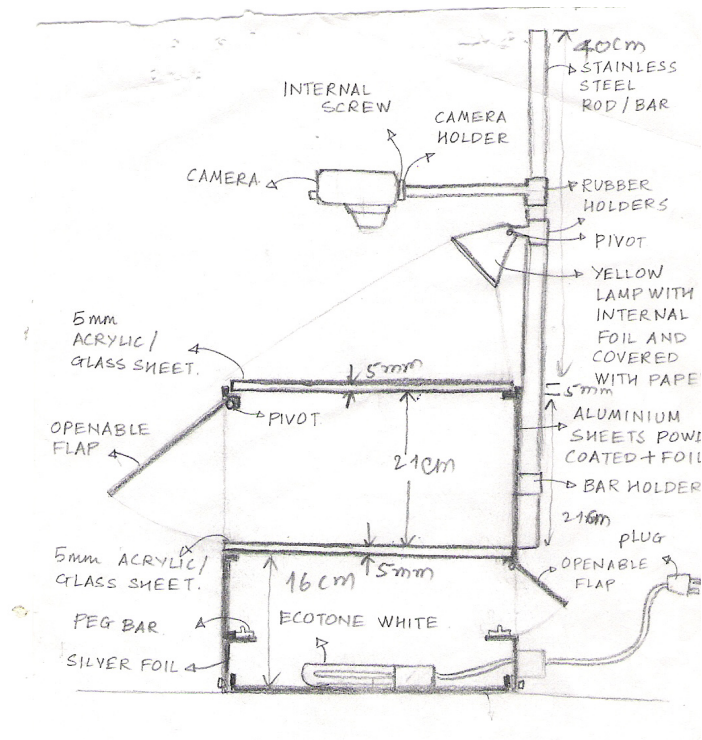 40cm
STAINLESS
STEEL
ROD/BAR
INTERNAL
SCREW
CAMERA
HOLDER
CAMERA
RUBBER
HOLDERS
PIVOT
YELLOW
LAMP WITH
INTERNAL
FOIL AND
COVERED
WITH PAPE
5mm
ACRYLIC/
GLASS SHEET.
5mm
5mm
PIVOT
OPENABLE
FLAP
ALUMINIUM
SHEETS POWD
COATED + FOIL
21cm
BAR HOLDER
PLUG
5mm ACRYLIC/
GLASS SHEET.
5mm
OPENABLE
FLAP
16cm
PEG BAR
ECOTONE WHITE
SILVER FOIL